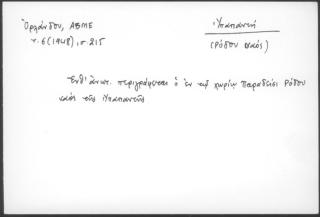 Ὀρλάνδου, ΑΒΜΕ
τ. 6 (1948), σ 215
Ὑπαπαντή
(Ρόδου ναός)
Ἔνθ' ἀνωτ. περιγράφεται ὁ ἐν τῷ χωρίῳ Παραδείσι Ρόδου
ναός τῆς Ὑπαπαντῆς